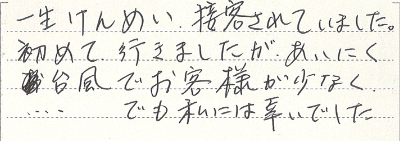 一生けんめい、接客されていました。
初めて行きましたが、あいにく
台風でお客様が少なく
‥‥ でも私には幸いでした